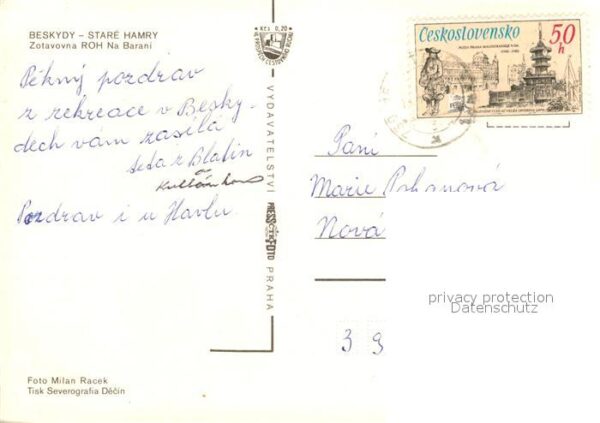 BESKYDY – STARÉ HAMRY
Zotavovna ROH Na Baraní
Pěkný pozdrav
z rekreace v Besky-
dech vám zasílá
z Blatin
Pozdrav i u Havlů.
Foto Milan Racek
Tisk Severografia Děčín
Kčs 0,20
VYDAVATELSTVÍ PRESSFOTO PRAHA
Československo
50 h
Paní
Marie
Nová
privacy protection
Datenschutz
3 9